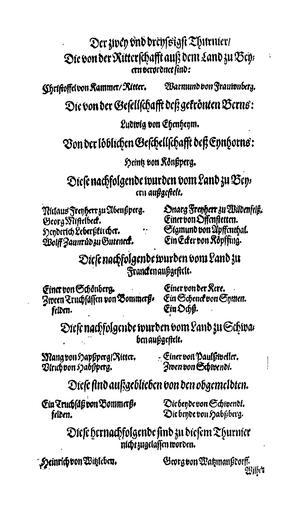 Der zwey vnd dreyssigst Thurnier/
Die von der Ritterschafft auß dem Land zu Bey-
ern verordnet sind:
Christoffel von Kammer/ Ritter. Warmund von Frauwnberg.
Die von der Gesellschafft deß gekrönten Berns:
Ludwig von Ehenheym.
Von der löblichen Geschellschafft deß Eynhorns:
Heintz von Könßperg.
Diese nachfolgende wurden vom Land zu Bey-
ern außgestelt.
Niclaus Freyherr zu Abenßperg. Onarg Freyherr zu Wildenfelß.
Georg Nistelbeck. Einer von Offenstetten.
Heyderich Leberßkircher. Sigmund von Apffenthal.
Wolff Zaunrüd zu Gutneck. Ein Ecker von Köpffing.
Diese nachfolgende wurden vom Land zu
Francken außgestelt.
Einer von Schönberg. Einer von der Kere.
Zween Truchsässen von Bommerß- Ein Schenck von Symen.
felden. Ein Ochß.
Diese nachfolgende wurden vom Land zu Schwa-
ben außgestelt.
Mang von Habßperg/ Ritter. Einer von Paulßweiler.
Vlrich von Habßperg. Zwen von Schwendi.
Diese sind außgeblieben von den obgemeldten.
Ein Truchsäß von Bommerß- Die beyde von Schwendi.
felden. Die beyde von Habßberg.
Diese hernachfolgende sind zu diesem Thurnier
nicht zugelassen worden.
Heinrich von Witzleben. Georg von Watzmanßdorff.